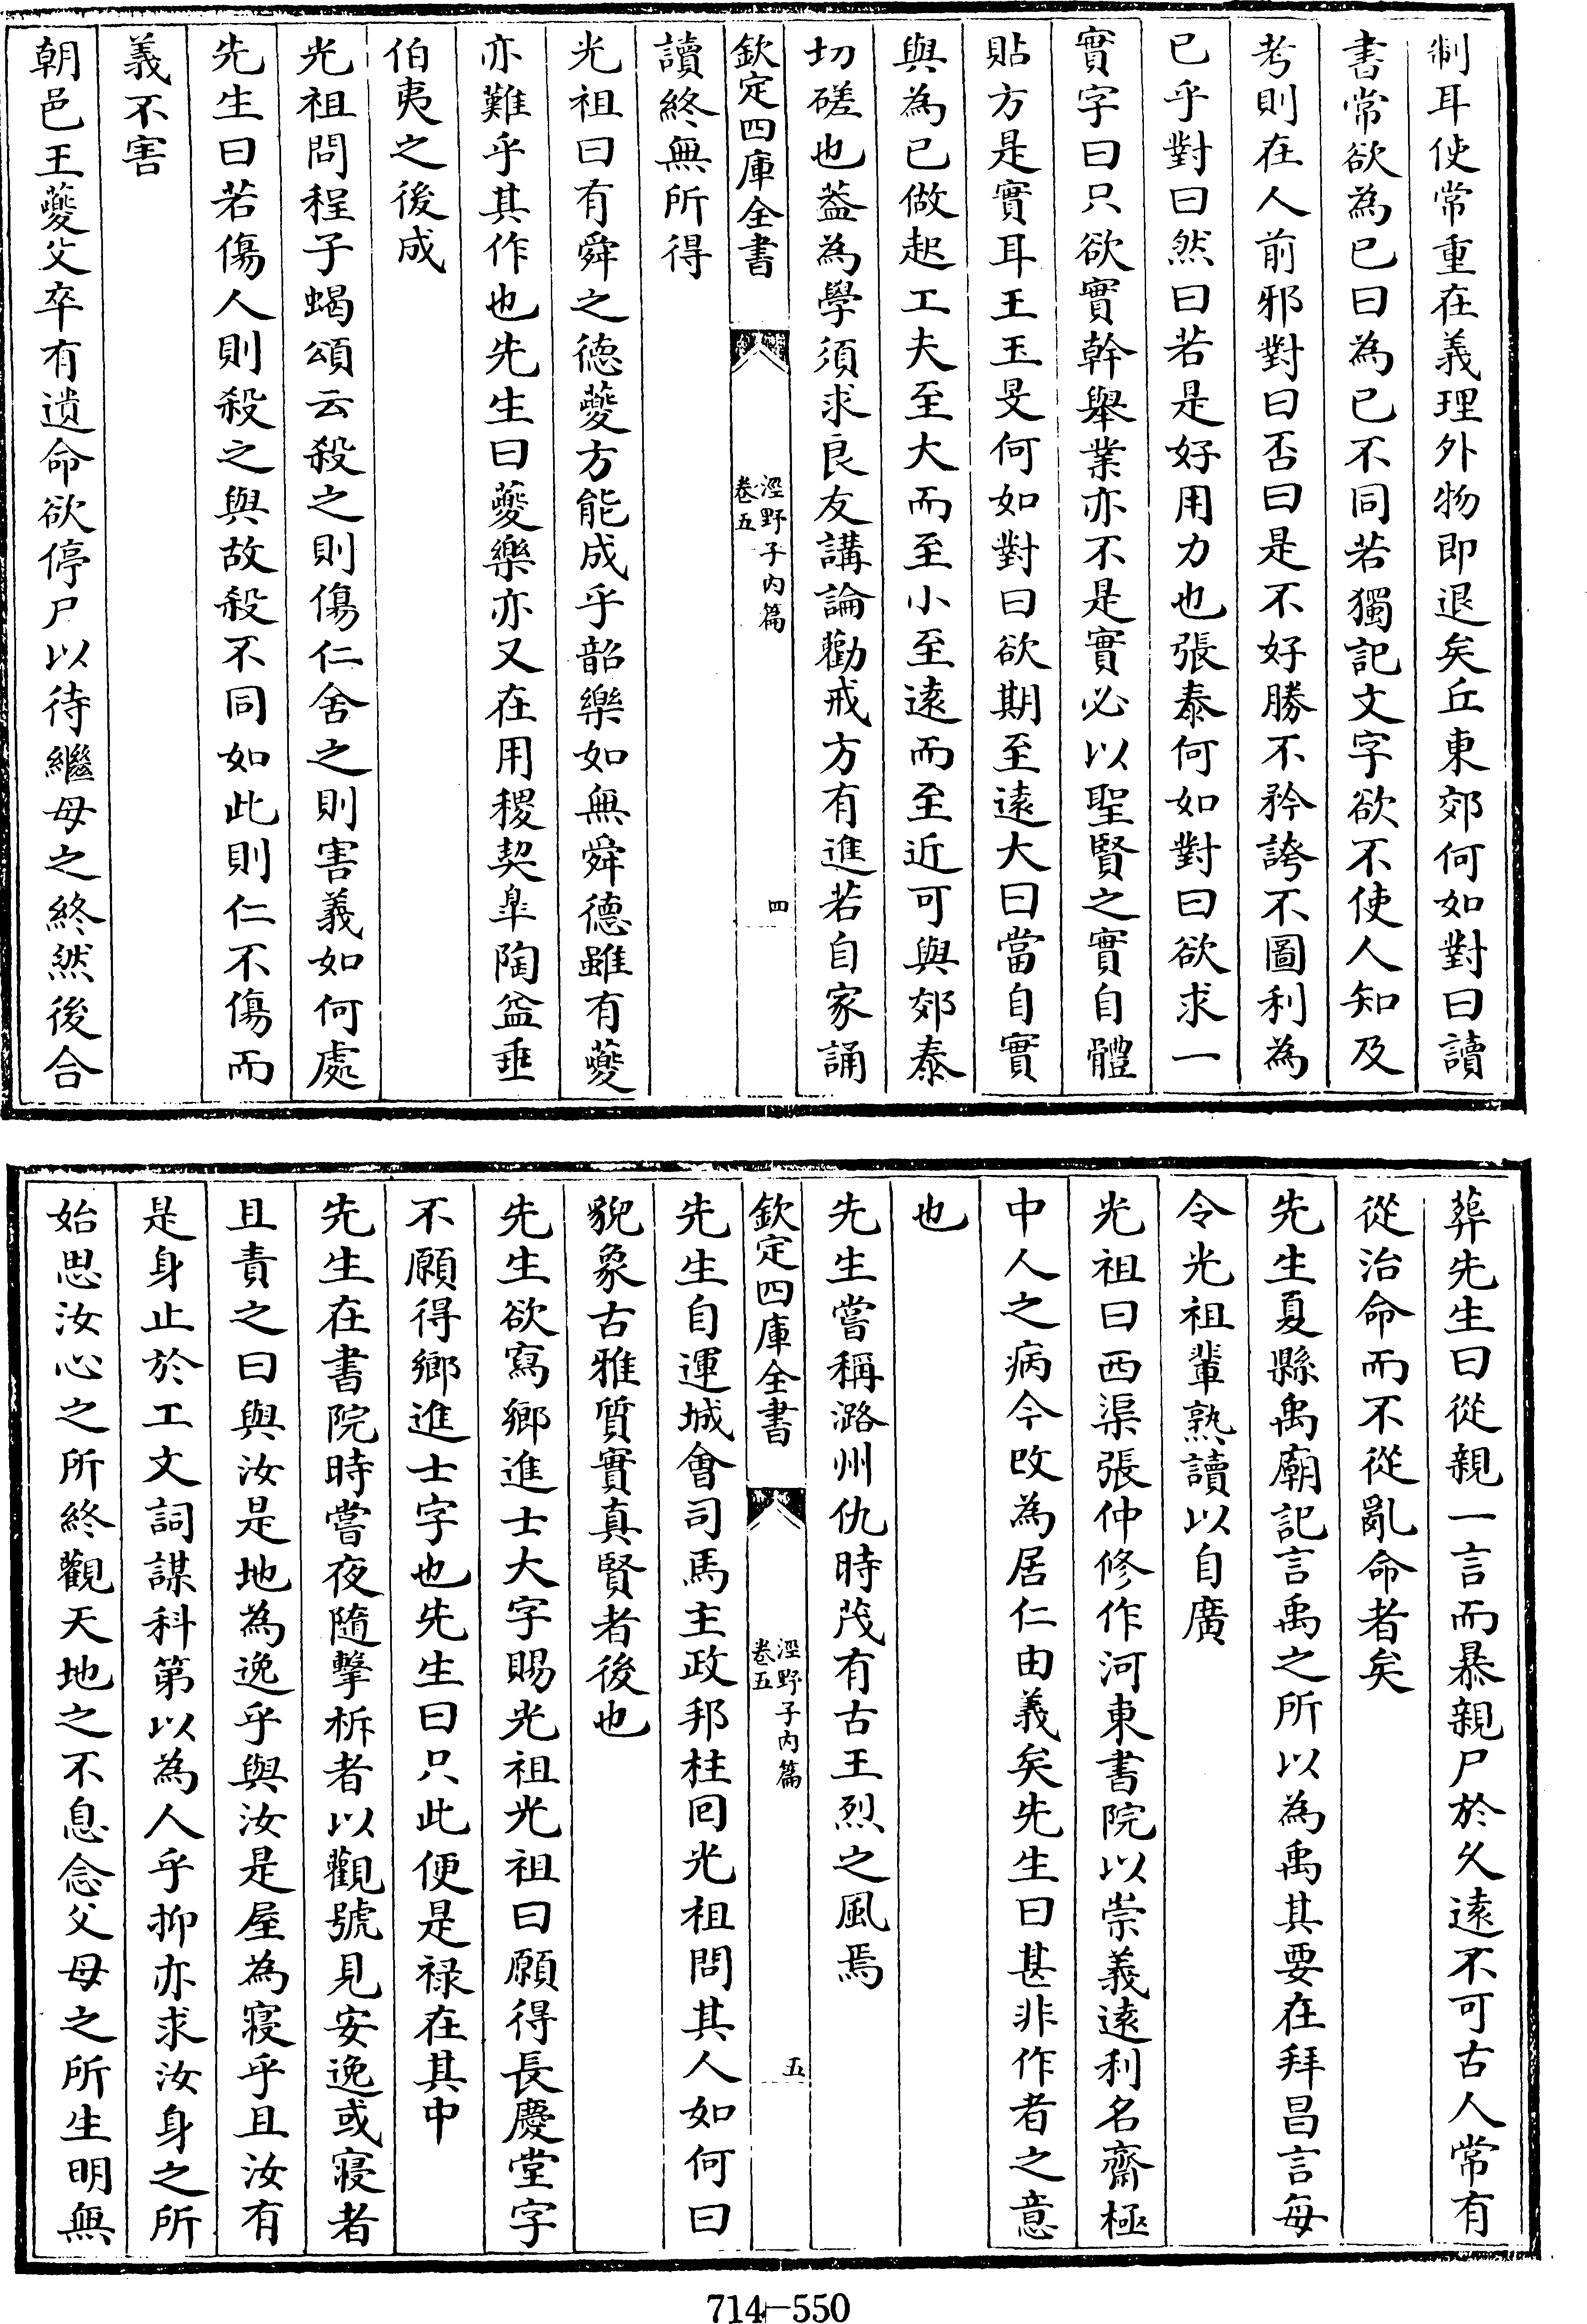 制耳使常重在義理外物即退矣丘東郊何如對曰讀
書常欲為已曰為已不同若獨記文字欲不使人知及
考則在人前邪對曰否曰是不好勝不矜誇不圖利為
已乎對曰然曰若是好用力也張泰何如對曰欲求一
實字曰只欲實幹舉業亦不是實必以聖賢之實自體
貼方是實耳王玉旻何如對曰欲期至遠大曰當自實
與為已做起工夫至大而至小至遠而至近可與郊泰
切磋也葢為學須求良友講論勸戒方有進若自家誦
欽定四庫全書
涇野子內篇
卷五
四
讀終無所得
光祖曰有舜之德夔方能成乎韶樂如無舜德雖有夔
亦難乎其作也先生曰夔樂亦又在用稷契臯陶益垂
伯夷之後成
光祖問程子蝎頌云殺之則傷仁舍之則害義如何處
先生曰若傷人則殺之與故殺不同如此則仁不傷而
義不害
朝邑王夔父卒有遺命欲停尸以待繼母之終然後合
葬先生曰從親一言而暴親尸於久遠不可古人常有
從治命而不從亂命者矣
先生夏縣禹廟記言禹之所以為禹其要在拜昌言每
令光祖輩熟讀以自廣
光祖曰西渠張仲修作河東書院以崇義遠利名齋極
中人之病今改為居仁由義矣先生曰甚非作者之意
也
先生嘗稱潞州仇時茂有古王烈之風焉
欽定四庫全書
涇野子內篇
卷五
五
先生自運城會司馬主政邦柱回光祖問其人如何曰
貌象古雅質實真賢者後也
先生欲寫鄉進士大字賜光祖光祖曰願得長慶堂字
不願得鄉進士字也先生曰只此便是禄在其中
先生在書院時嘗夜隨擊柝者以觀號見安逸或寢者
且責之曰與汝是地為逸乎與汝是屋為寢乎且汝有
是身止於工文詞謀科第以為人乎抑亦求汝身之所
始思汝心之所終觀天地之不息念父母之所生明無
714-550